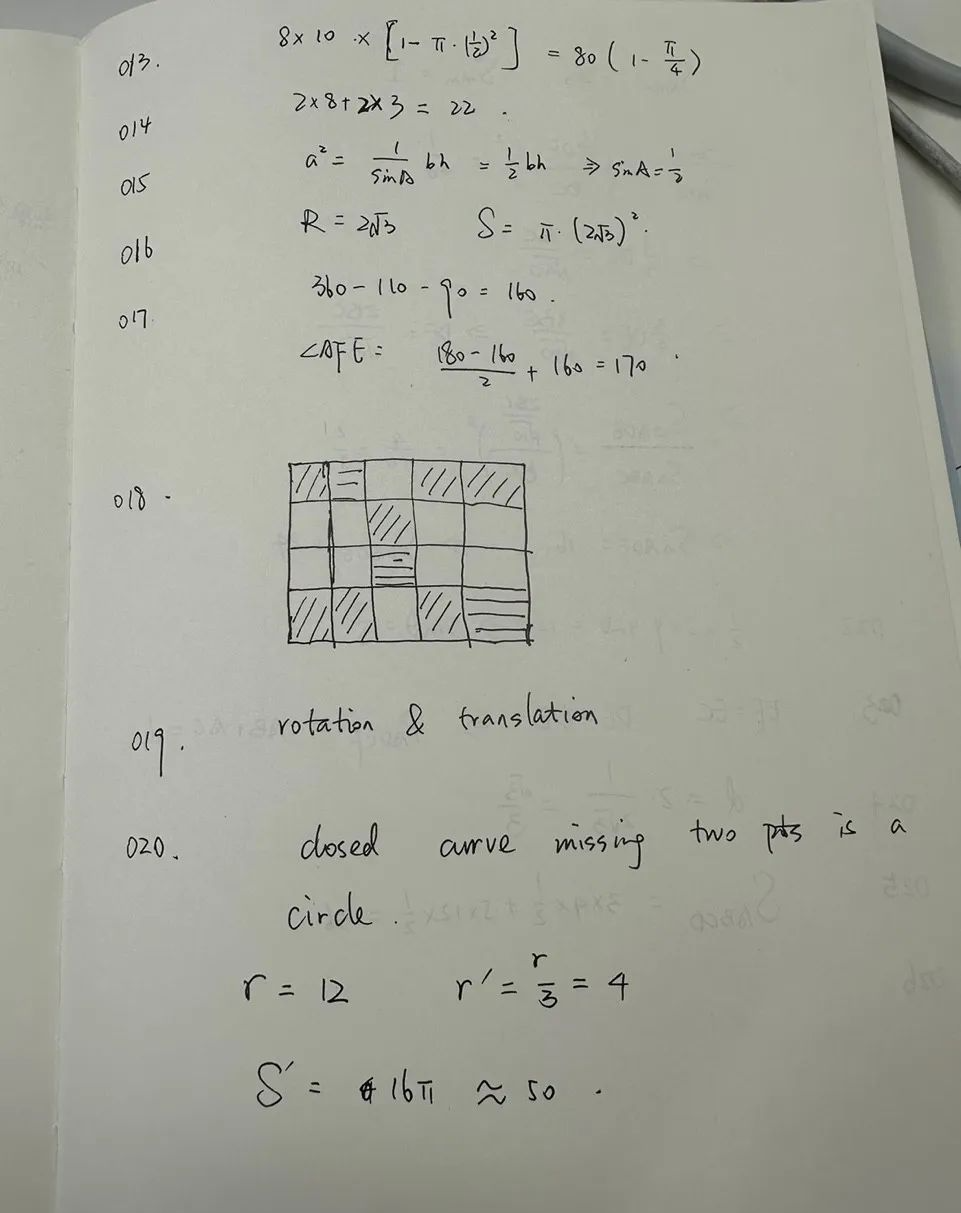 013. 8 × 10 · × [1 - π · (1/2)²] = 80 (1 - π/4)
014 2 × 8 + 2 × 3 = 22 .
015 a² = 1/sinA bh = 1/2 bh ⇒ sinA = 1/2
016 R = 2√3 S = π · (2√3)² .
017. 360 - 110 - 90 = 160 .
∠AFE = (180 - 160)/2 + 160 = 170 .
018 .
019 . rotation & translation
020 . closed curve missing two pts is a
circle .
r = 12 r' = r/3 = 4
S' = 16π ≈ 50 .